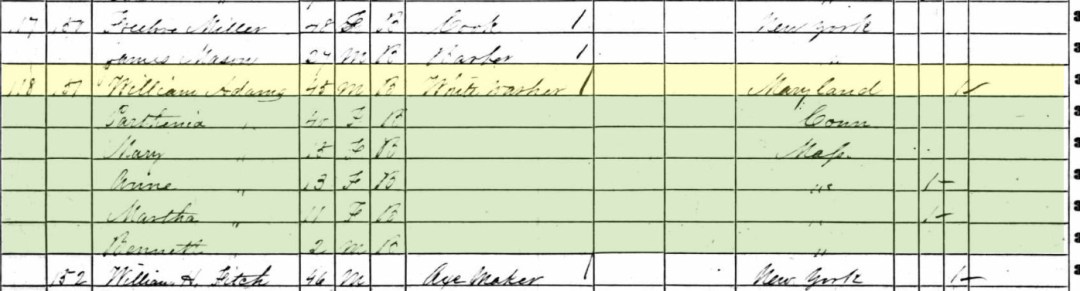 117 151 Miller 48 F B Cook 1 New York
James Mason 27 M B Barber 1 "
118 151 William Adams 45 M B White washer 1 Maryland 1
Parthenia " 40 F B Conn
Mary " 15 F B Mass.
Anne " 13 F B " 1
Martha " 11 F B " 1
Bennett " 2 M B "
152 William H. Fitch 46 M Axe Maker 1 New York 1